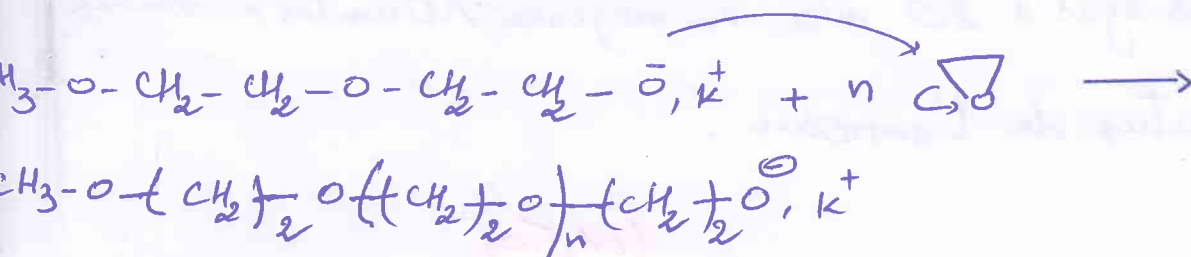 H₃-O-CH₂-CH₂-O-CH₂-CH₂-Ō, K⁺ + n O ⟶
CH₃-O-(CH₂)₂-O((CH₂)₂O)ₙ-(CH₂)₂O⊖, K⁺